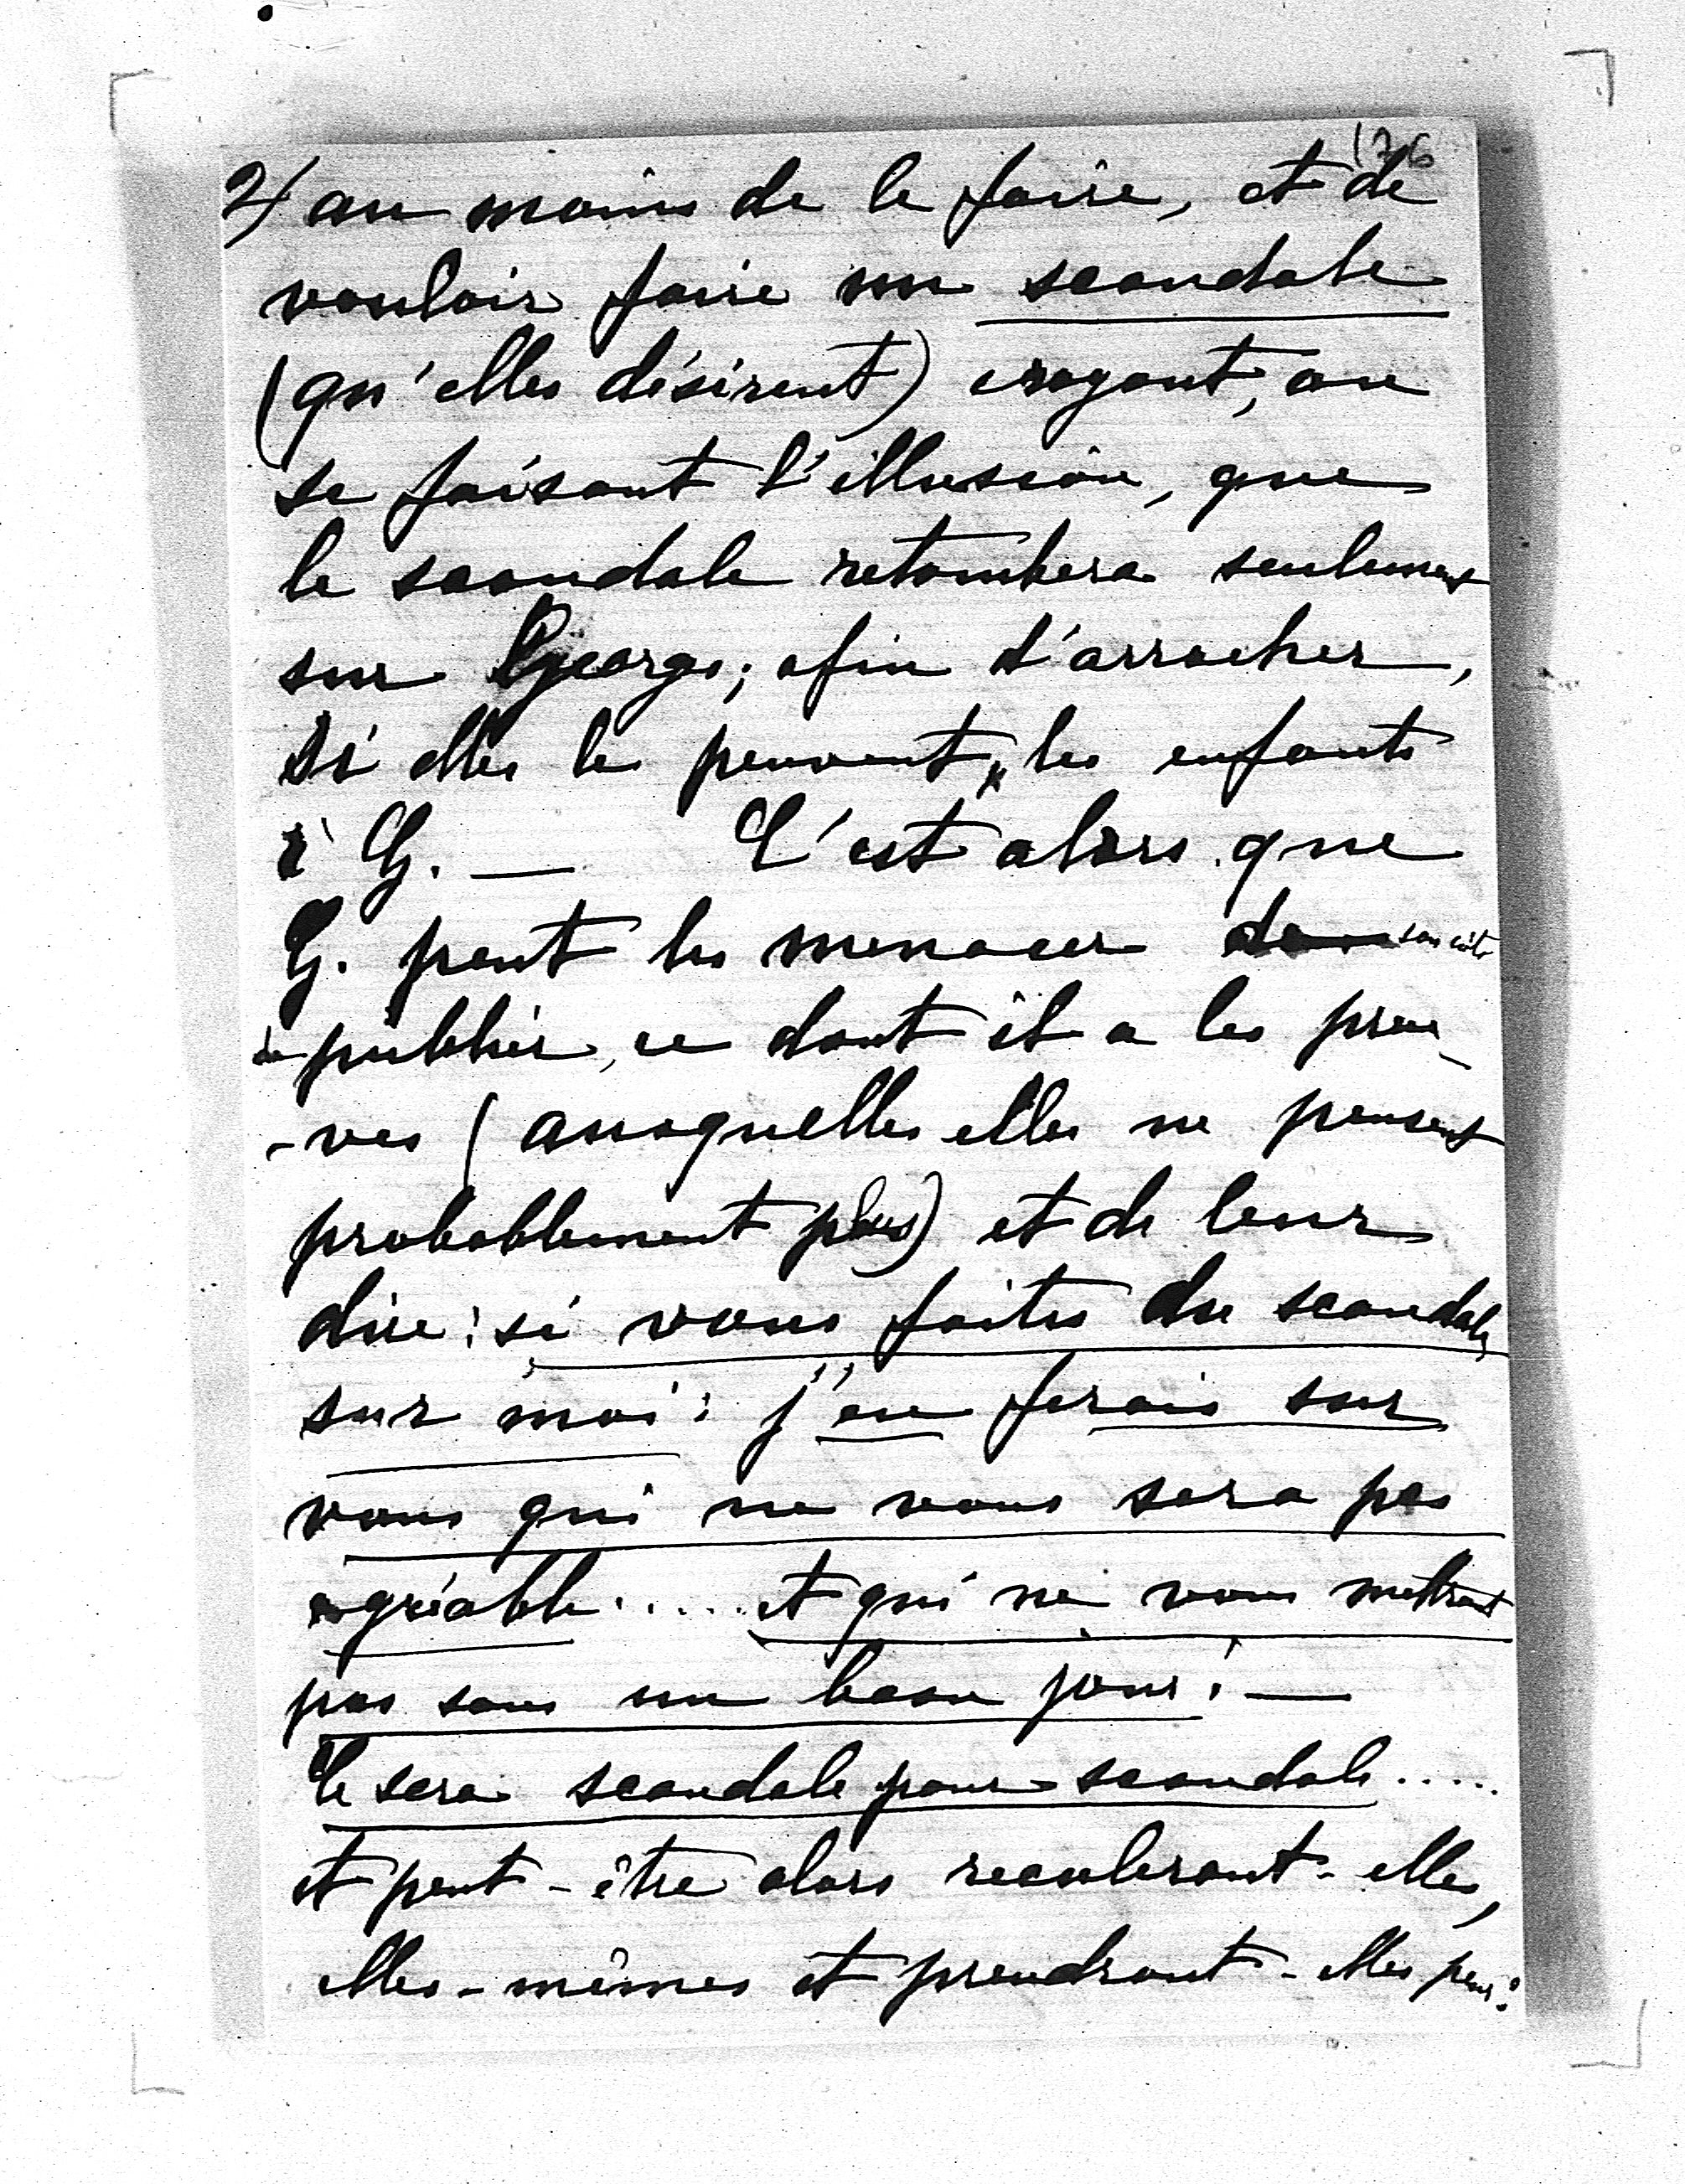 176
2/ au moins de le faire, et de
vouloir faire un scandale
(qu'elles désirent) croyant, ou
se faisant l'illusion, que
le scandale retombera seulement
sur George; afin d'arracher,
si elles le peuvent, les enfants
à G. — C'est alors que
G. peut les menacer son côté
de publier, ce dont il a les preu-
-ves (auxquelles elles ne pensent
probablement plus) et de leur
dire: si vous faites du scandale
sur moi: j'en ferais sur
vous qui ne vous sera pas
agréable..... et qui ne vous mettront
pas sous un beau jour! —
Ce sera scandale pour scandale.....
et peut-être alors reculeront-elles,
elles-mêmes et prendront-elles peur!